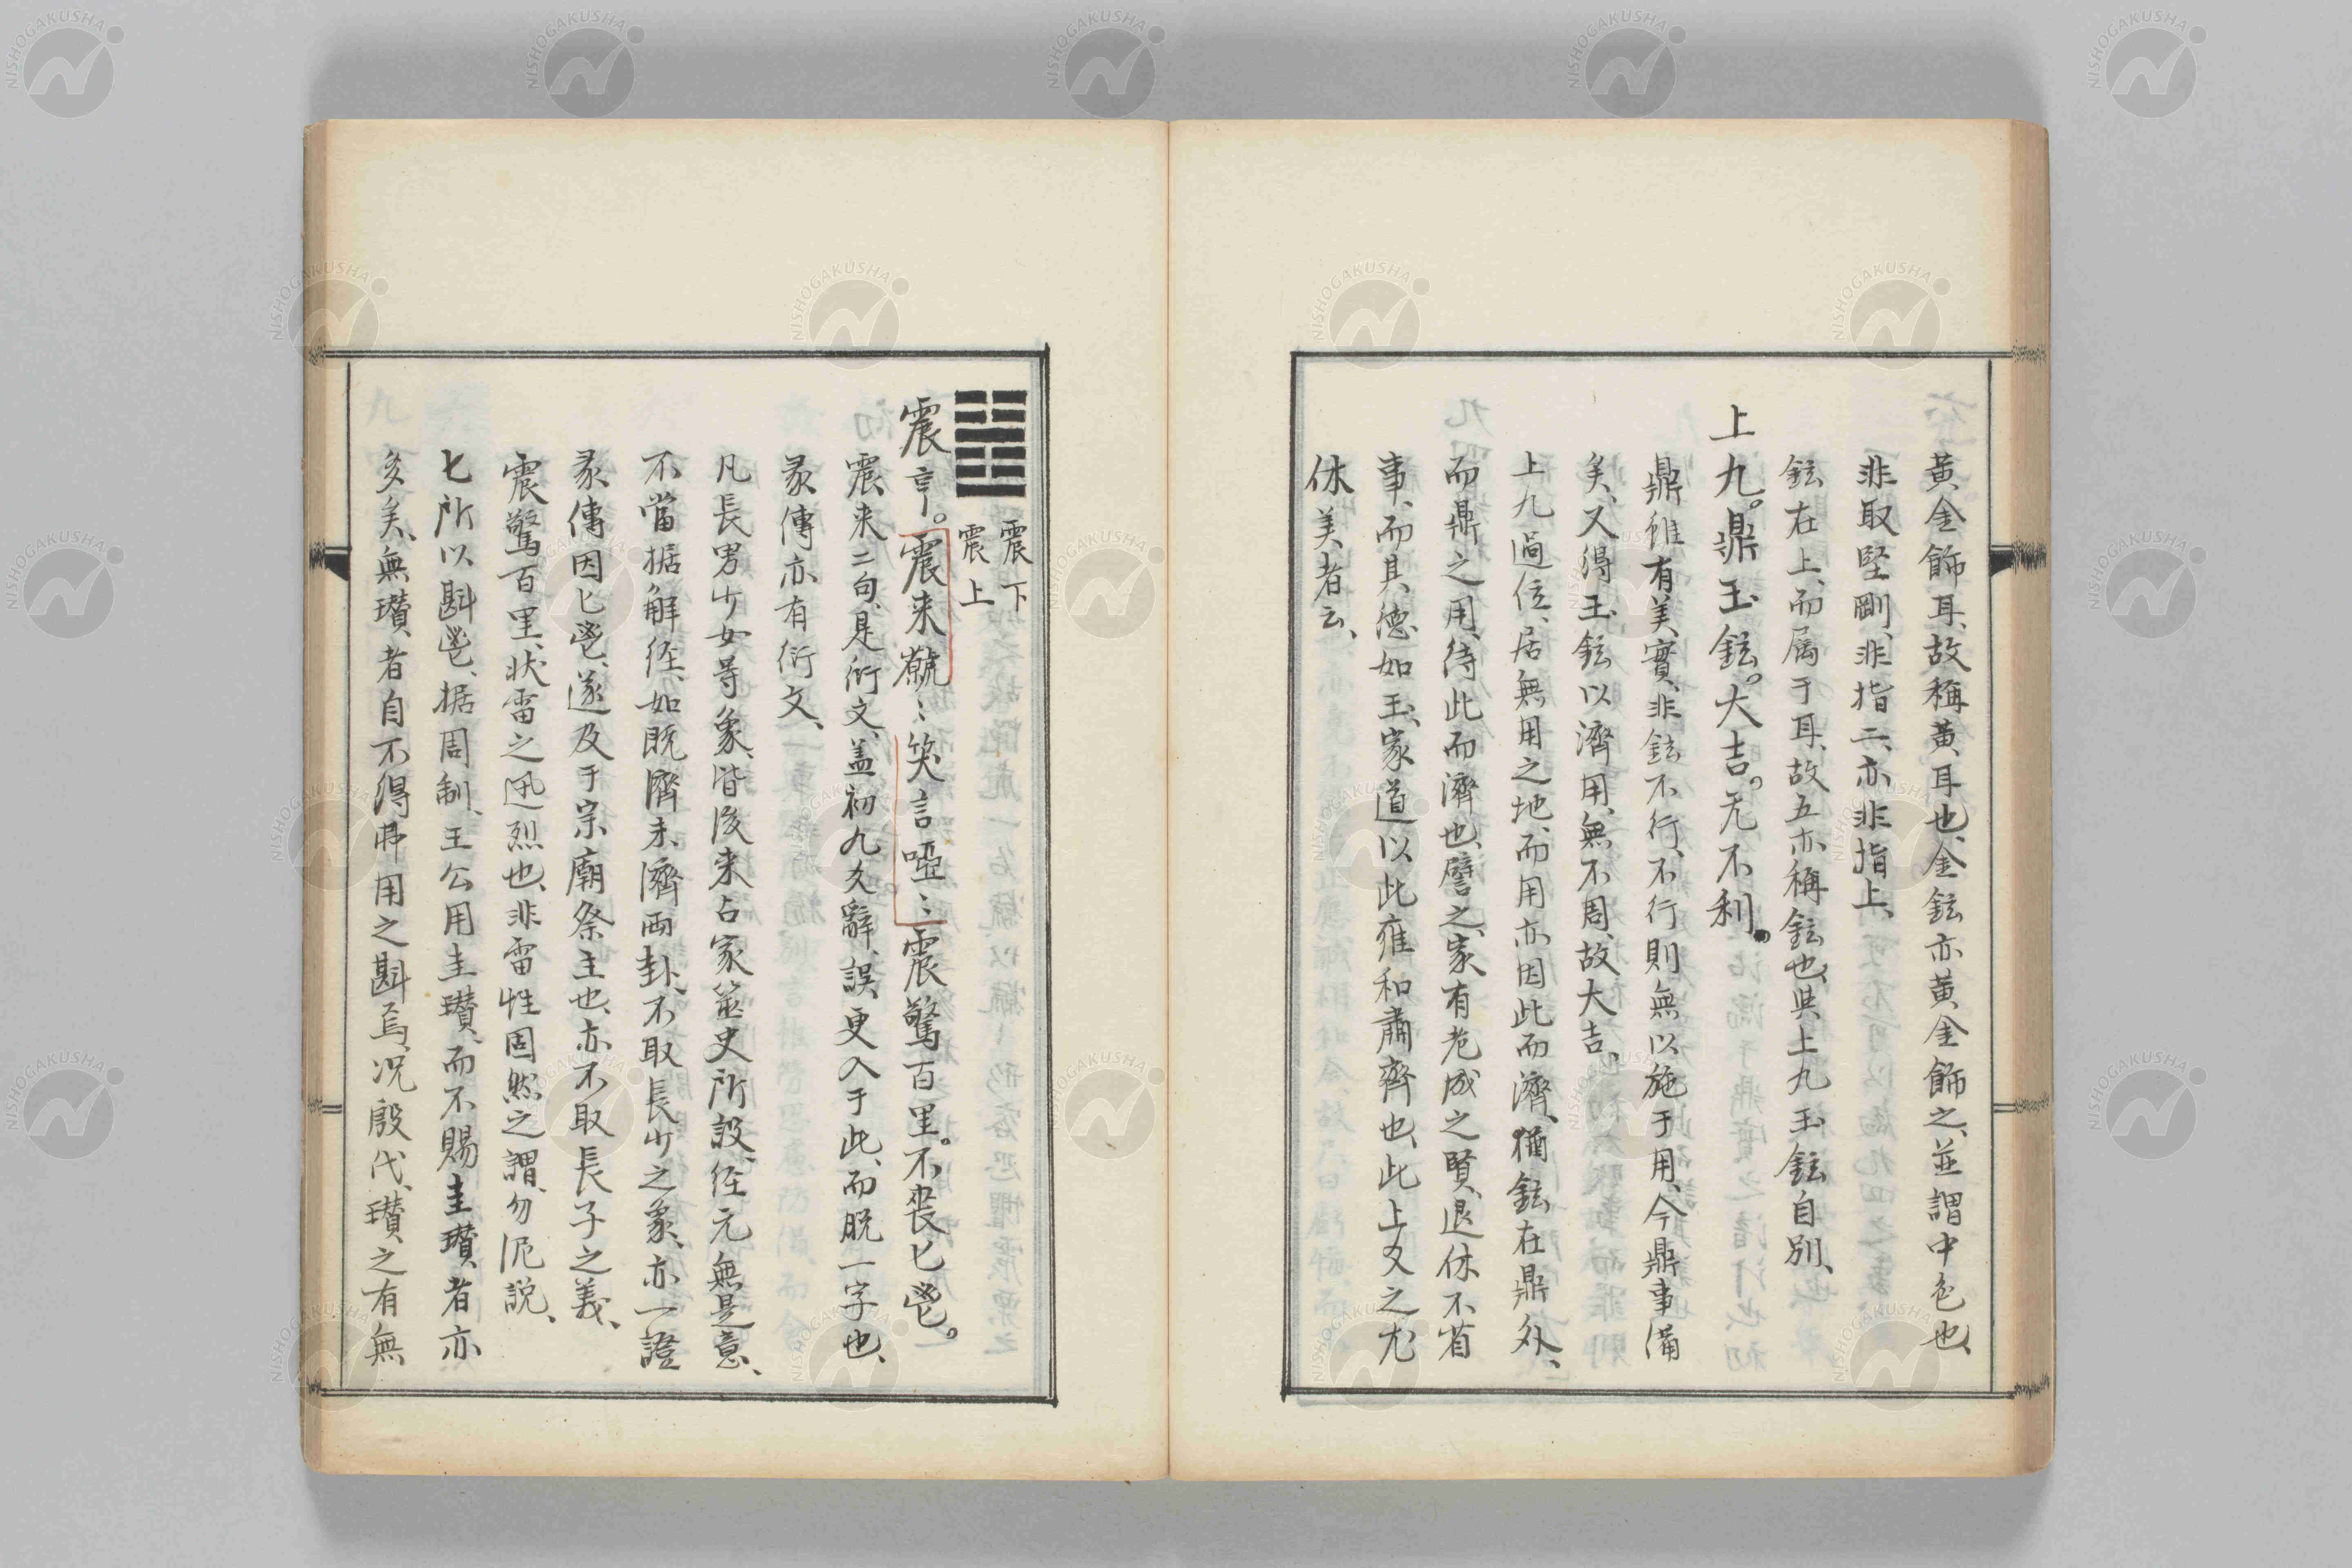 黄金飾耳、故稱黄耳也、金鉉亦黄金飾之、並謂中色也、
非取堅剛、非指二、亦非指上、
鉉在上、而属于耳、故五亦稱鉉也、與上九玉鉉自別、
上九。鼎玉鉉。大吉。无不利。
鼎雖有美實、非鉉不行、不行則無以施于用、今鼎事備
矣、又得玉鉉以濟用、無不周、故大吉、
上九過位、居無用之地、而用亦因此而濟、猶鉉在鼎外、
而鼎之用、待此而濟也、譬之家有老成之賢、退休不省
事、而其德如玉、家道以此雍和肅齊也、此上爻之尤
休美者云、
震下
震上
震亨。震来虩〻笑言啞〻震驚百里。不喪匕鬯。
震来二句、是衍文、盖初九爻辭、誤更入于此、而脱一字也、
彖傳亦有衍文、
凡長男少女等象、皆後来占家筮史所設、經元無是意、
不當据解經、如既濟未濟両卦、不取長少之象、亦一證
彖傳因匕鬯、遂及于宗廟祭主也、亦不取長子之義、
震驚百里、状雷之迅烈也、非雷性固然之謂、勿泥説、
匕所以斟鬯、据周制、王公用圭瓚、而不賜圭瓚者亦
多矣、無瓚者自不得弗用之斟焉、况殷代、瓚之有無
NISHOGAKUSHA